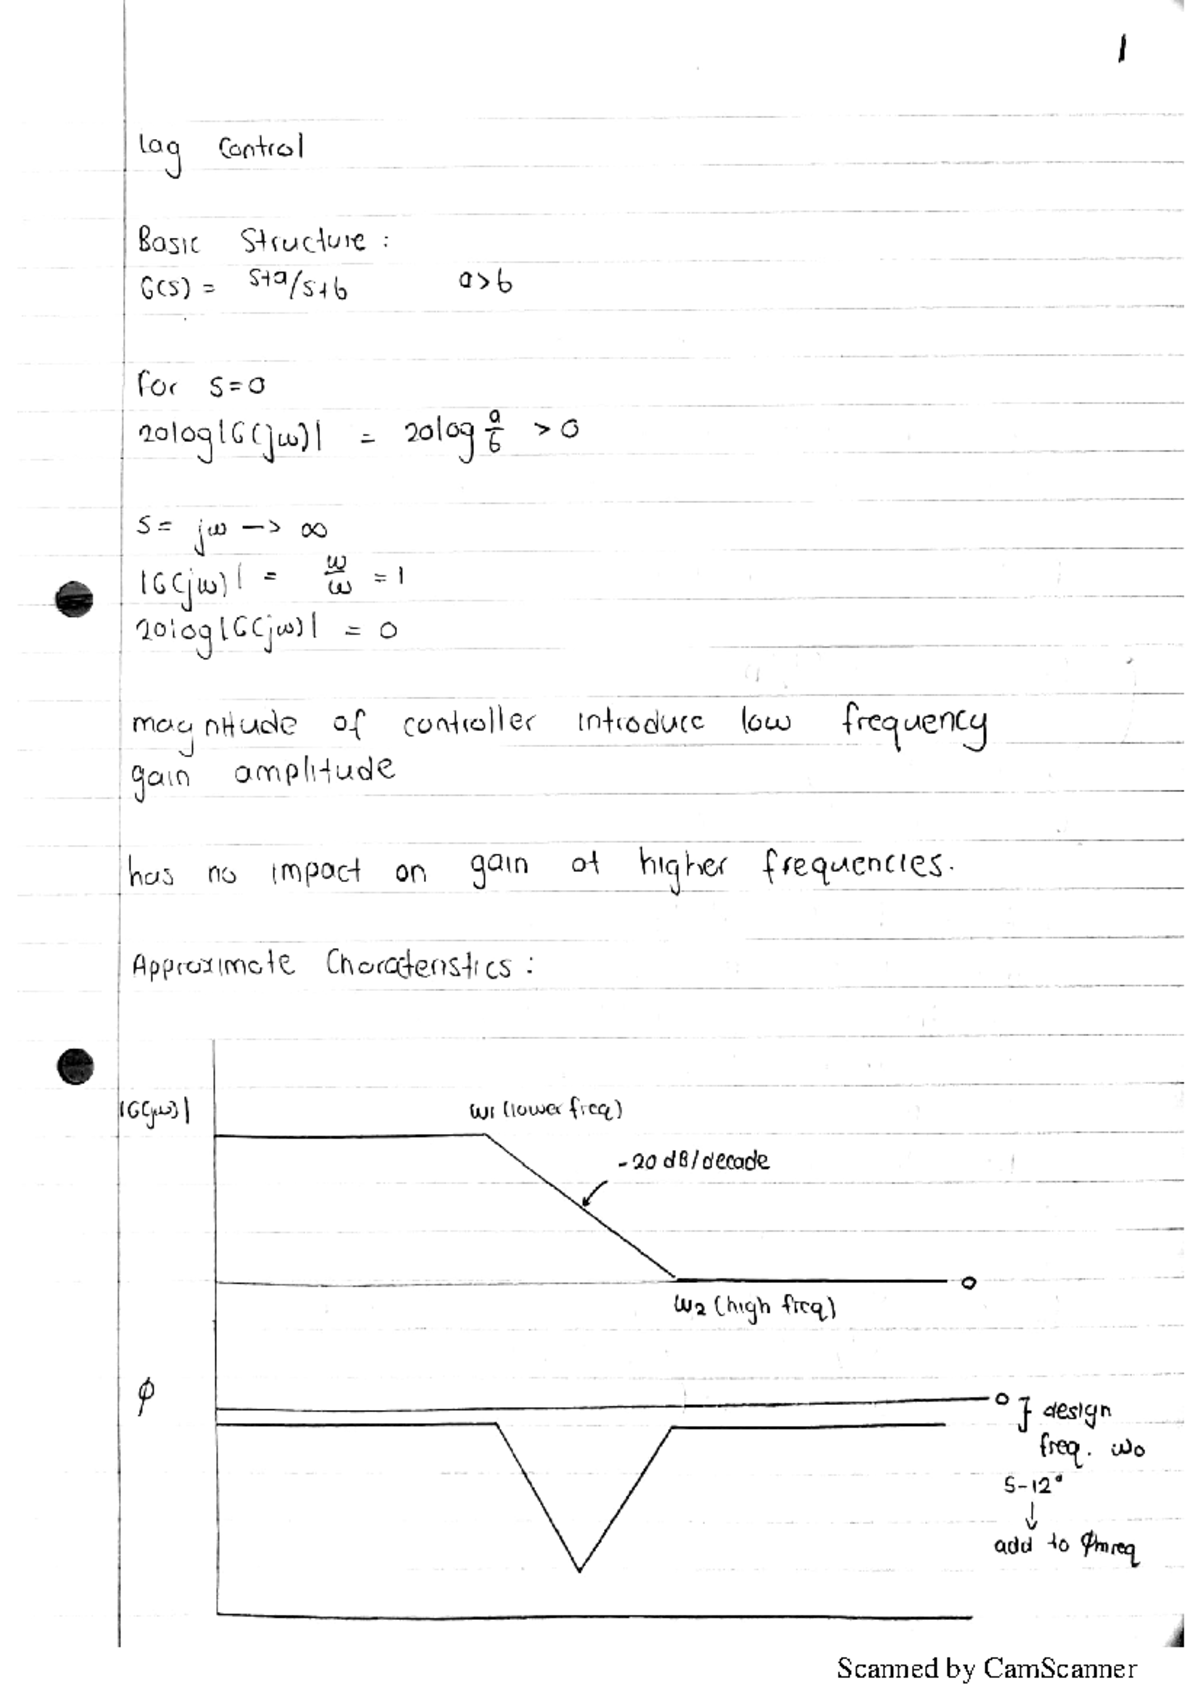 1
Lag Control
Basic Structure:
G(s) = s+a/s+b a>b
for s=0
20log|G(jω)| = 20log a/b > 0
s= jω —> ∞
|G(jω)| = ω/ω = 1
20log|G(jω)| = 0
magnitude of controller introduce low frequency
gain amplitude
has no impact on gain at higher frequencies.
Approximate Charateristics:
|G(jω)|
ω1 (lower freq)
-20 dB/decade
0
ω2 (high freq)
φ
0 } design
freq. ω0
5-12°
↓
add to φmreq
Scanned by CamScanner